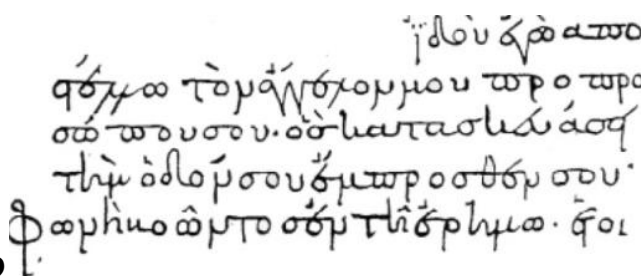 ϊδοὺ ἐγὼ ἀπο
στέλλω τὸν ἄγγελον μου προ προ
σώπου σου· ὃς κατασκευάσει
τὴν ὁδόν σου ἔμπροσθέν σου·
Φωνὴ βοῶντος ἐν τῆ ἐρήμω· ἑτοι